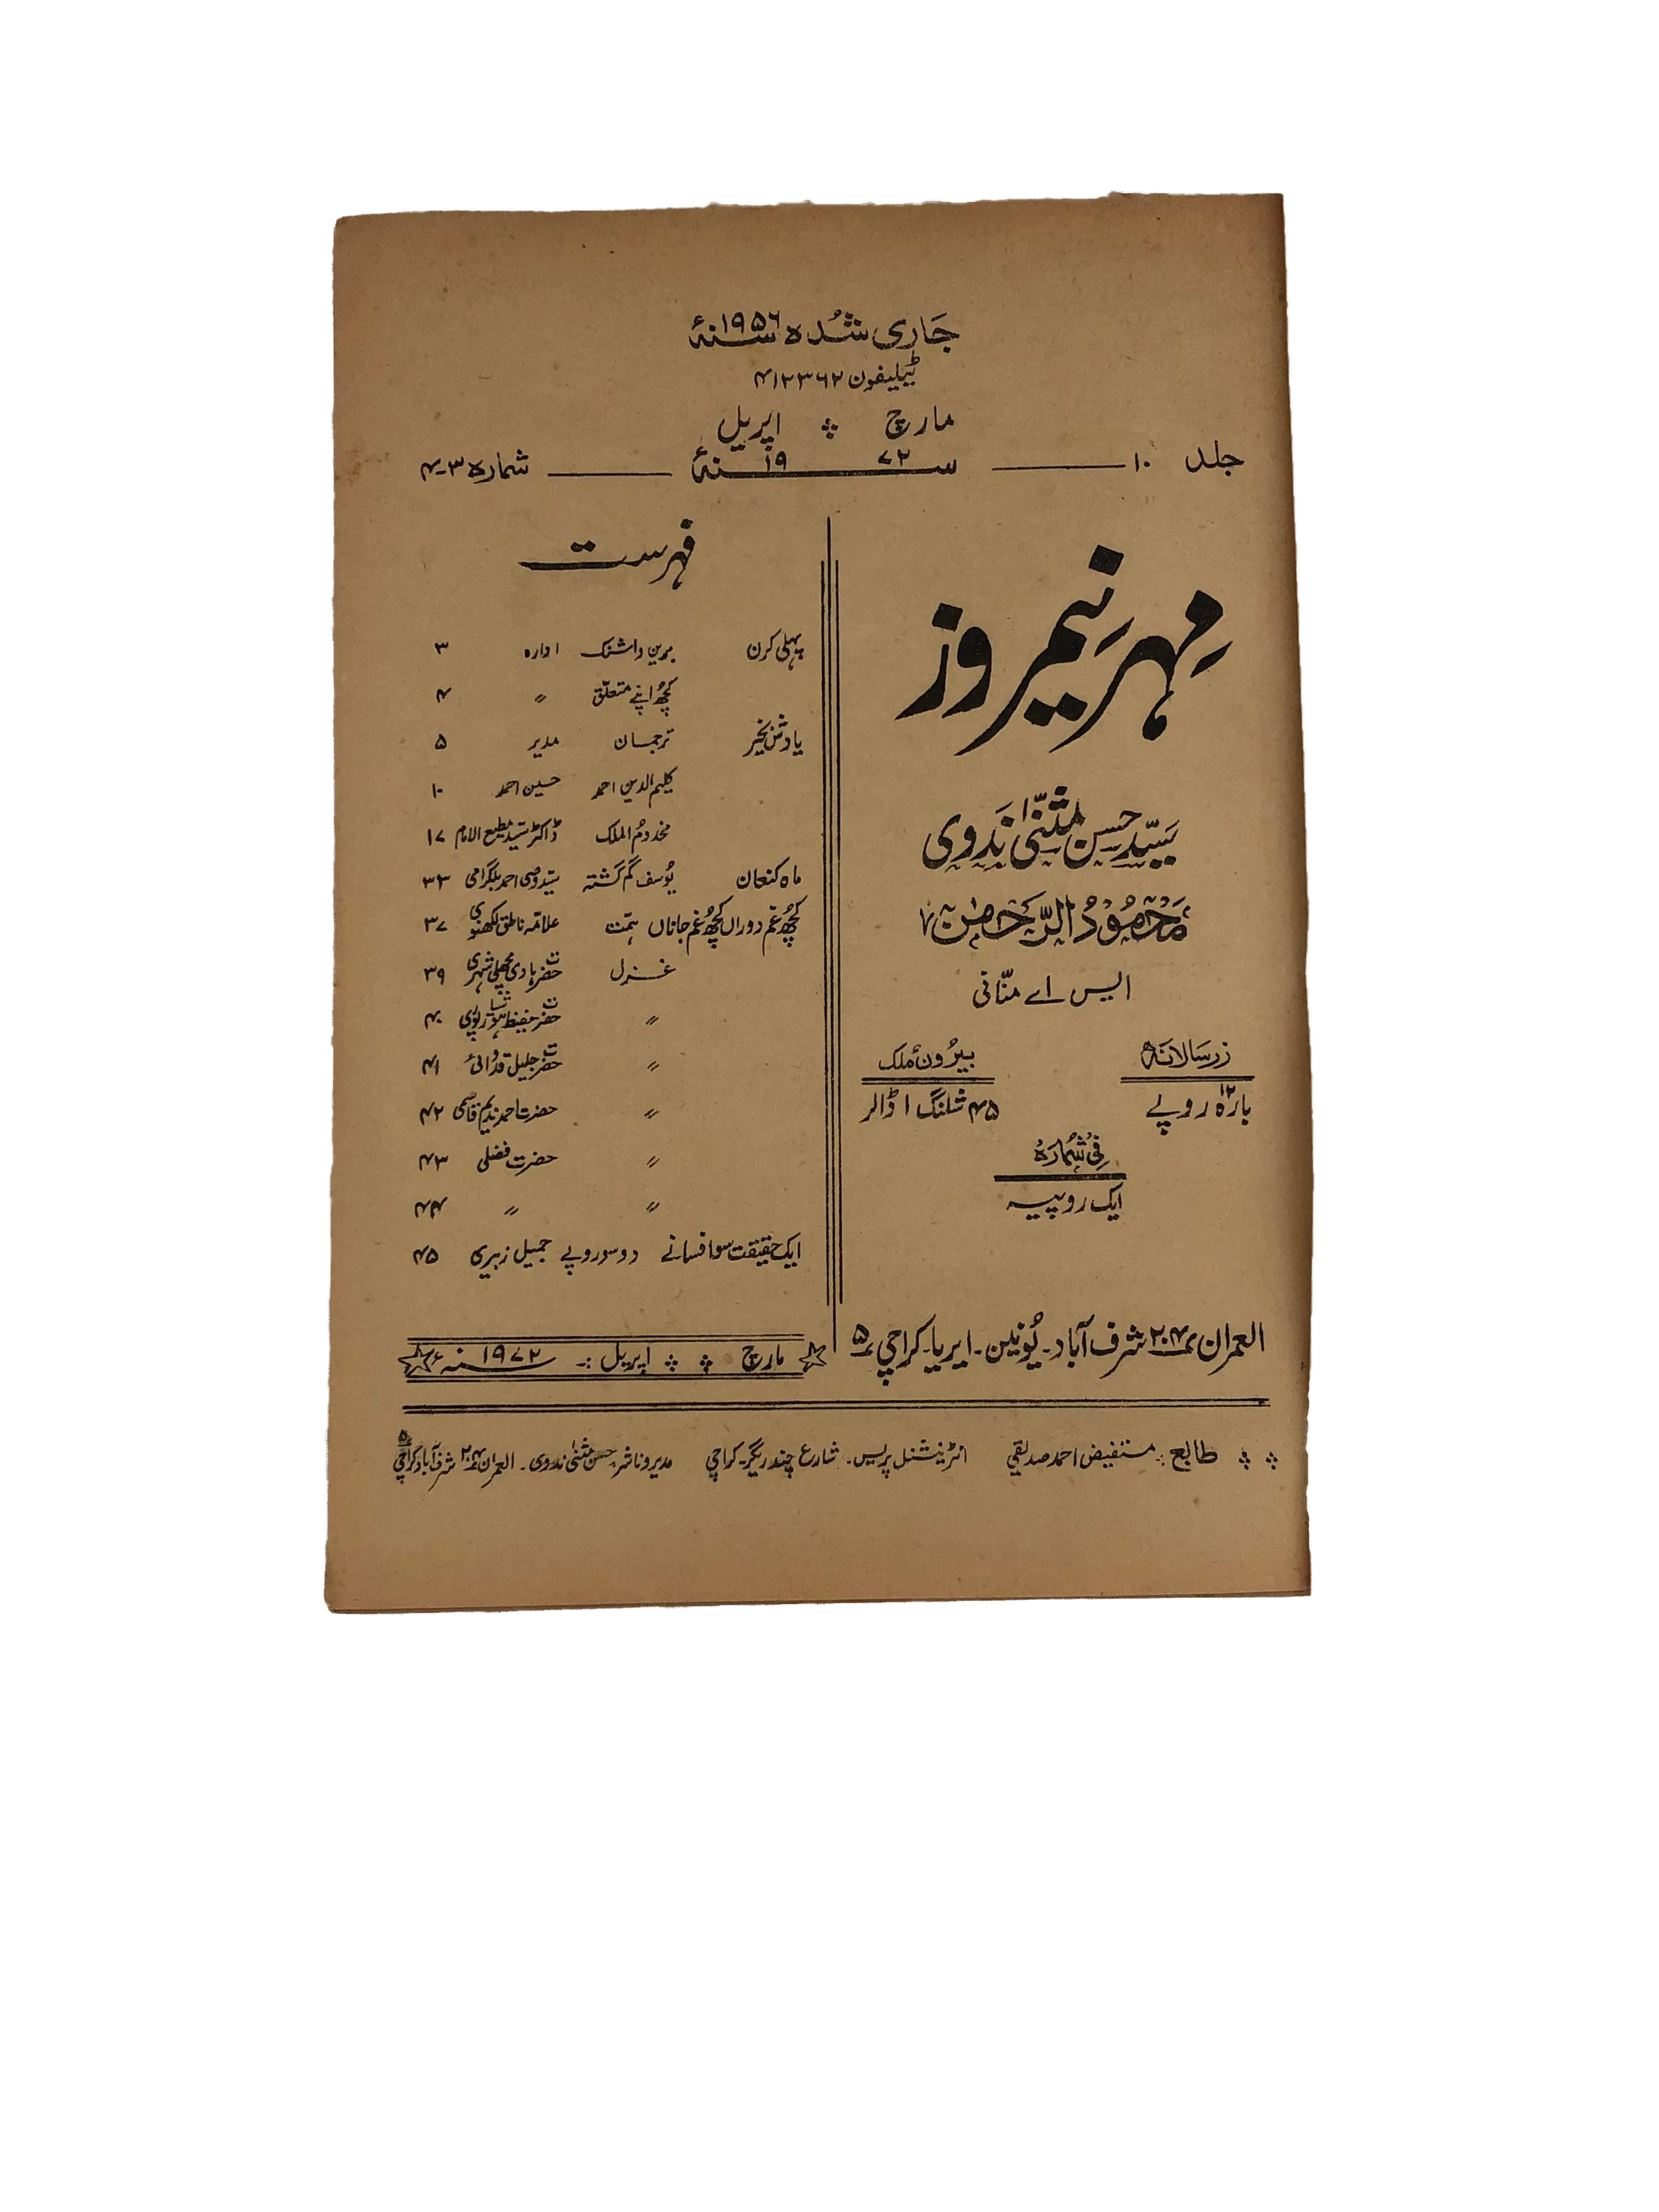 جاری شدہ سنہ ۱۹۵۶ء
ٹیلیفون ۴۱۲۳۶۲
مارچ اپریل
جلد ۱۰ سنہ ۱۹۷۲ء شمارہ ۳-۴
مہر نیمروز
سید حسن مثنیٰ ندوی
محمود الرحمٰن
ایس اے منّانی
زر سالانہ
بارہ ۱۲ روپے
بیرون ملک
۴۵ شلنگ ۱ ڈالر
فی شمارہ
ایک روپیہ
العمران ۲۰۴ شرف آباد۔ یونین۔ ایریا۔ کراچی ۵
فہرست
پہلی کرن بریں دانش ادارہ ۳
کچھ اپنے متعلق " ۴
یادش بخیر ترجمان مدیر ۵
کلیم الدین احمد حسین احمد ۱۰
مخدوم الملک ڈاکٹر سید مطیع الامام ۱۷
ماہ کنعان یوسف گم گشتہ سید وصی احمد بلگرامی ۳۳
کچھ غم دوراں کچھ غم جاناں ہمت علامہ ناطق لکھنوی ۳۷
غزل حضرت ہادی مچھلی شہری ۳۹
" حضرت حفیظ ہوشیارپوری ۴۰
" حضرت جلیل قدوائی ۴۱
" حضرت احمد ندیم قاسمی ۴۲
" حضرت فضلی ۴۳
" " ۴۴
ایک حقیقت سو افسانے دو سو روپے جمیل زبیری ۴۵
مارچ اپریل :۔ سنہ ۱۹۷۲ء
طابع :۔ مستفیض احمد صدیقی انٹرنیشنل پریس۔ شارع چندریگر۔ کراچی مدیر و ناشر حسن مثنیٰ ندوی۔ العمران ۲۰۴ شرف آباد کراچی ۵